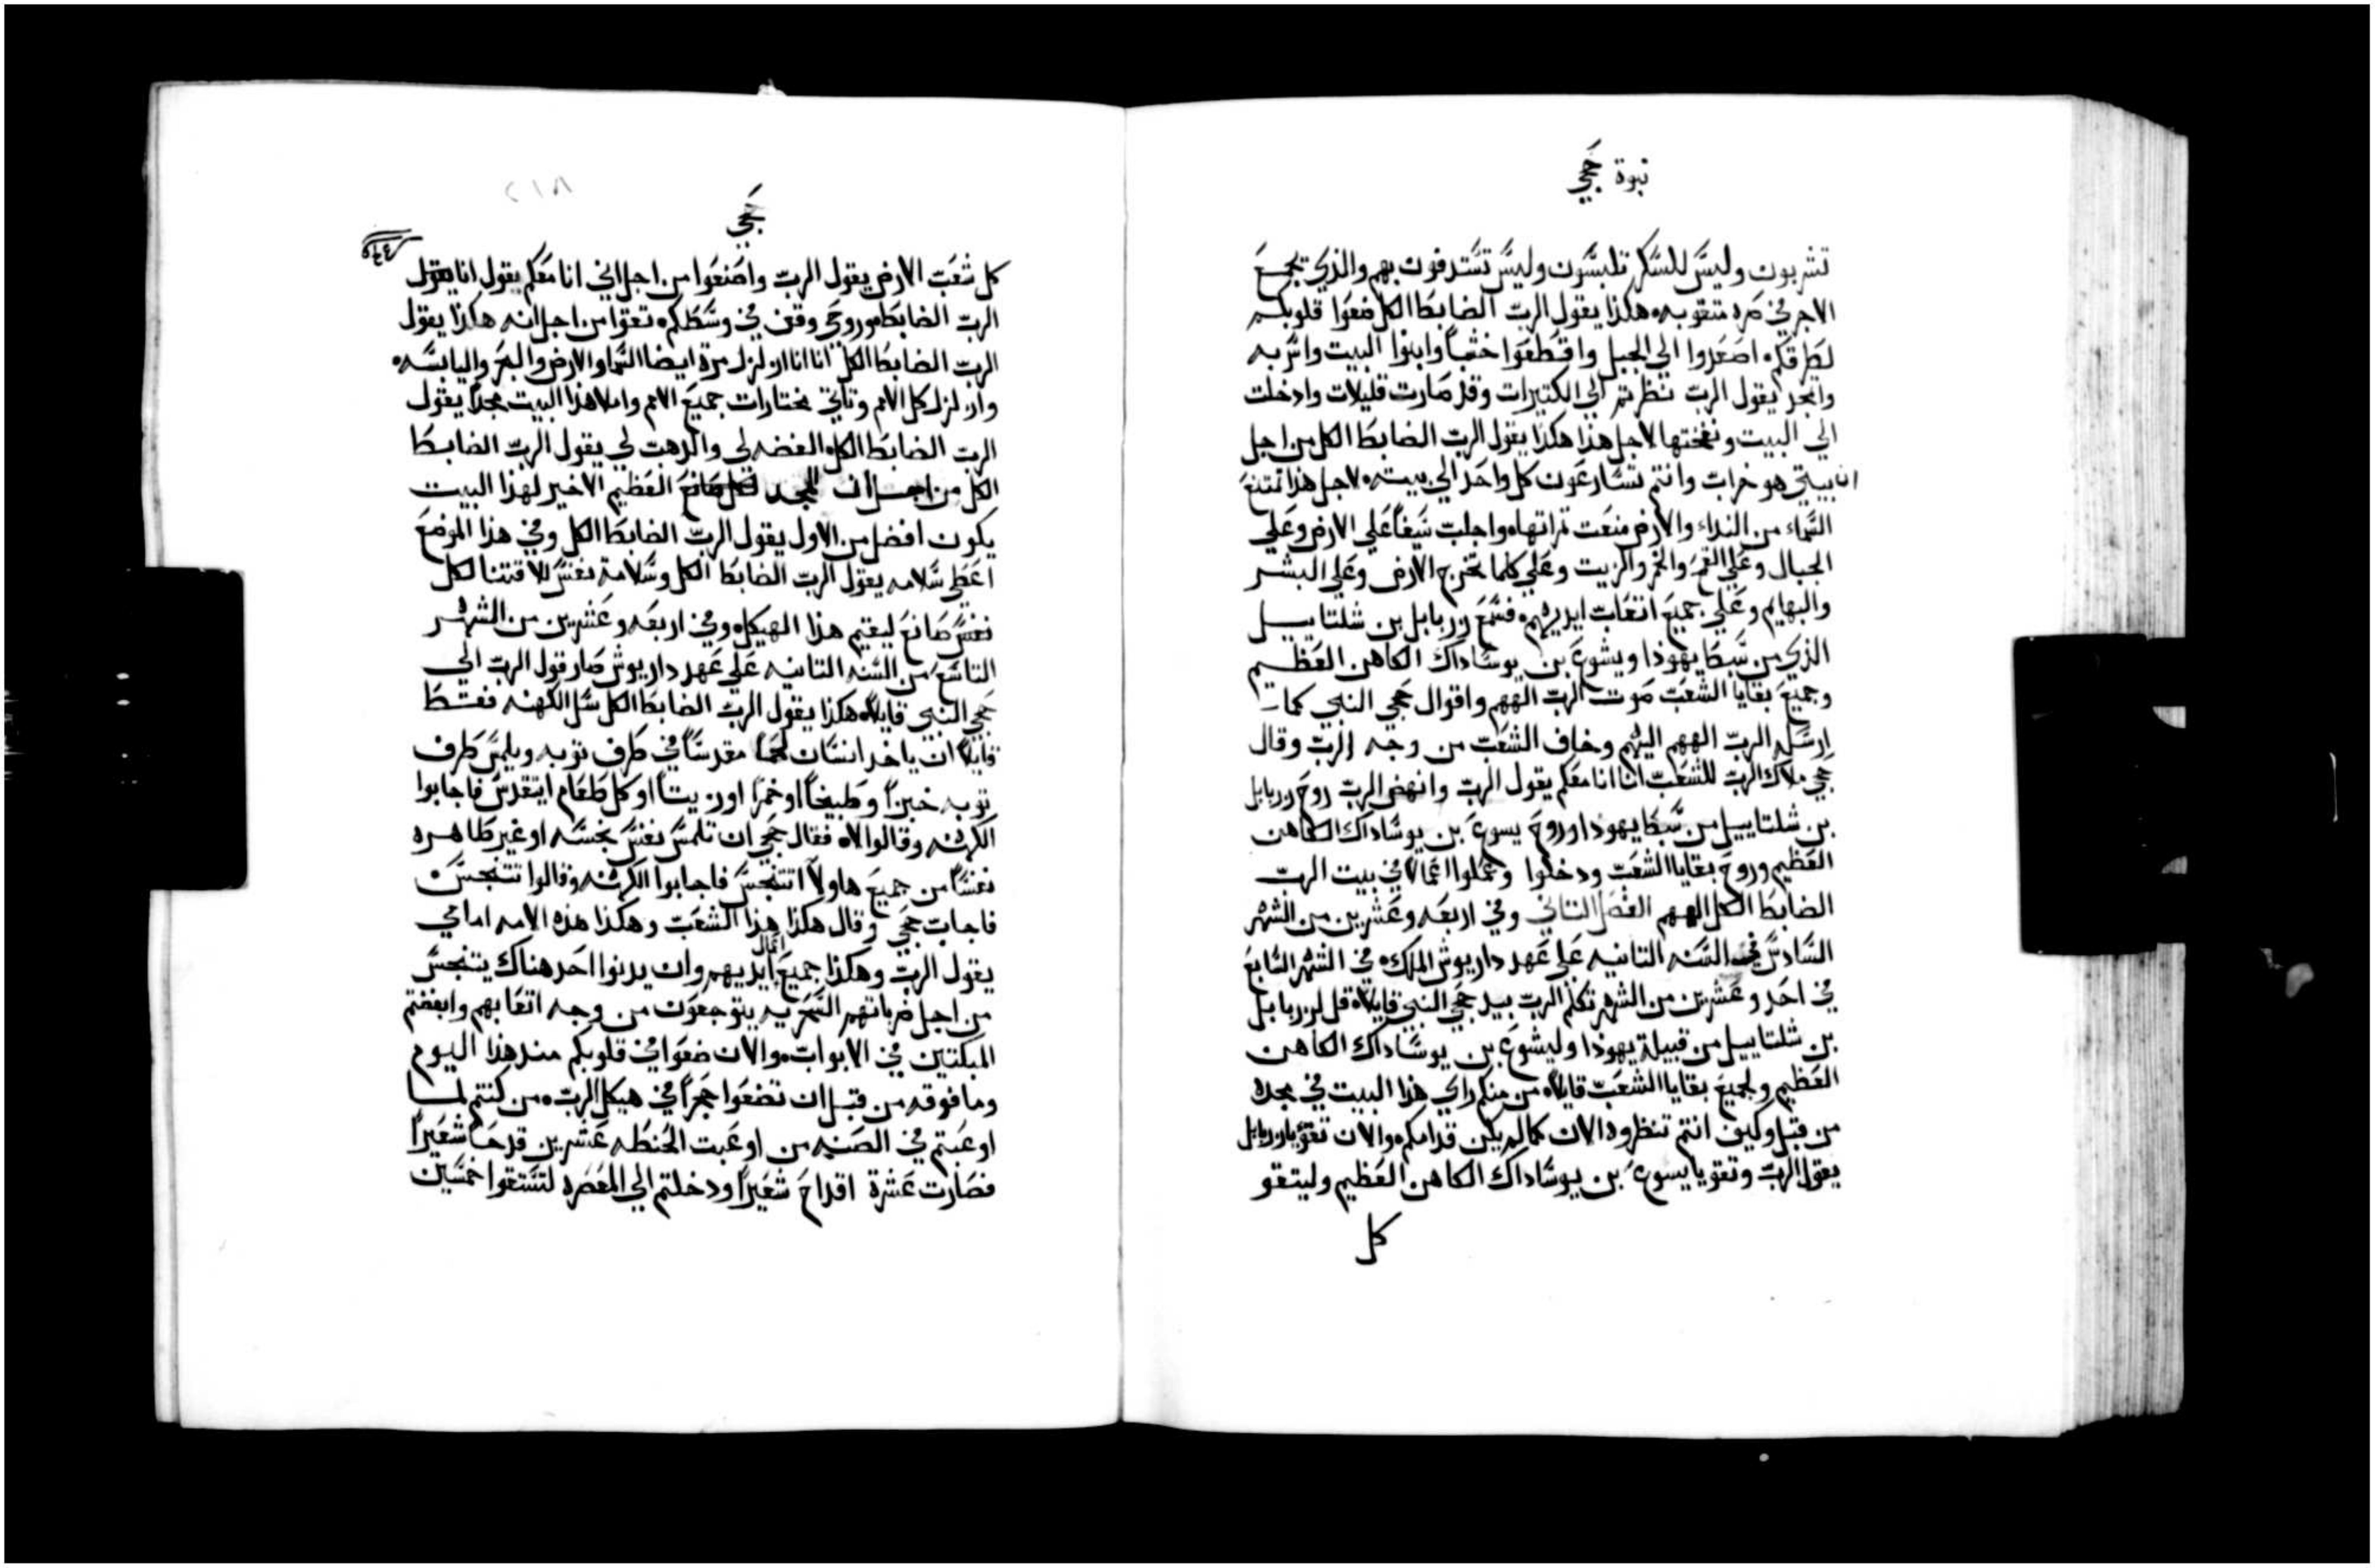 نبوة حجي
تشربون وليس للسكر تلبسون وليس تستدفون بهم والذي يجمع
الاجر في صره منقوبه هكذا يقول الرب الضابط الكل ضعوا قلوبكم
لطرقكم اصعدوا الي الجبل واقطعوا خشباً وابنوا البيت واسّر به
واتمجد يقول الرب نظرتم الي الكتيرات وقد صارت قليلات وادخلت
الي البيت ونفختها لاجل هذا هكذا يقول الرب الضابط الكل من اجل
ان بيتي هو خراب وانتم تسارعون كل واحد الي بيته لاجل هذا تمتنع
السماء من النداء والارض منعت تمراتها واجلب سيفاً علي الارض وعلي
الجبال وعلي القمح والخمر والزيت وعلي كلما تخرج الارض وعلي البشر
والبهايم وعلي جميع اتعاب ايديهم فسمع زربابل بن شلتاييل
الذي من سبط يهوذا ويشوع بن يوساداك الكاهن العظيم
وجميع بقايا الشعب صوت الرب الههم واقوال حجي النبي كما
ارسله الرب الههم اليهم وخاف الشعب من وجه الرب وقال
حجي ملاك الرب للشعب انا انا معكم يقول الرب وانهض الرب روح زربابل
بن شلتاييل من سبط يهوذا وروح يسوع بن يوساداك الكاهن
العظيم وروح بقايا الشعب ودخلوا وعملوا اعمالا في بيت الرب
الضابط الكل الههم الفصل التاني وفي اربعه وعشرين من الشهر
السادس في السنه التانيه علي عهد داريوش الملك في الشهر السابع
في احد وعشرين من الشهر تكلم الرب بيد حجي النبي قايلاً قل لزربابل
بن شلتاييل من قبيلة يهوذا وليشوع بن يوساداك الكاهن
العظيم ولجميع بقايا الشعب قايلاً من منكم راي هذا البيت في مجده
من قبل وكيف انتم تنظروه الان كما لم يكن قدامكم والان تقوّ يا زربابل
يقول الرب وتقو يا يسوع بن يوساداك الكاهن العظيم وليتقو
كل
٢١٨
حجي
كل شعب الارض يقول الرب واصنعوا من اجل اني انا معكم يقول انا يقول
الرب الضابط وروحي وقف في وسطكم تقوا من اجل انه هكذا يقول
الرب الضابط الكل انا انا ازلزل مرة ايضا السما والارض والبحر واليابسه
وازلزل كل الامم وتاتي مختارات جميع الامم واملا هذا البيت مجداً يقول
الرب الضابط الكل الفضه لي والدهب لي يقول الرب الضابط
الكل من اجل ان المجد العظيم الاخير لهذا البيت
يكون افضل من الاول يقول الرب الضابط الكل وفي هذا الموضع
اعطي سلامه يقول الرب الضابط الكل وسلامة نفس للاقتنا لكل
نفس صانع ليقيم هذا الهيكل وفي اربعه وعشرين من الشهر
التاسع من السنه التانيه علي عهد داريوش صار قول الرب الي
حجي النبي قايلاً هكذا يقول الرب الضابط الكل سل الكهنه فقط
قايلاً ان ياخد انسان لحما مقدساً في طرف توبه ويلمس طرف
توبه خبزاً وطبيخاً او خمراً او زيتاً او كل طعام ايتقدس فاجابوا
الكهنه وقالوا لا فقال حجي ان تلمس نفس نجسه او غير طاهره
نفساً من جميع هاولا اتتنجس فاجابوا الكهنه وقالوا تتنجس
فاجاب حجي وقال هكذا هذا الشعب وهكذا هذه الامه امامي
يقول الرب وهكذا جميع اعمال ايديهم وان يدنوا احد هناك يتنجس
من اجل ضرباتهم السَحَريه يتوجعون من وجه اتعابهم وابغضتم
المبكتين في الابواب والان ضعوا في قلوبكم مند هذا اليوم
وما فوقه من قبل ان تضعوا حجراً في هيكل الرب من كنتم لما
اوعبتم في الصَنِيه من اوعبت الحنطه عشرين قدحاً شعيراً
فصارت عشرة اقداح شعيراً ودخلتم الي المعصره لتستقوا خمسين